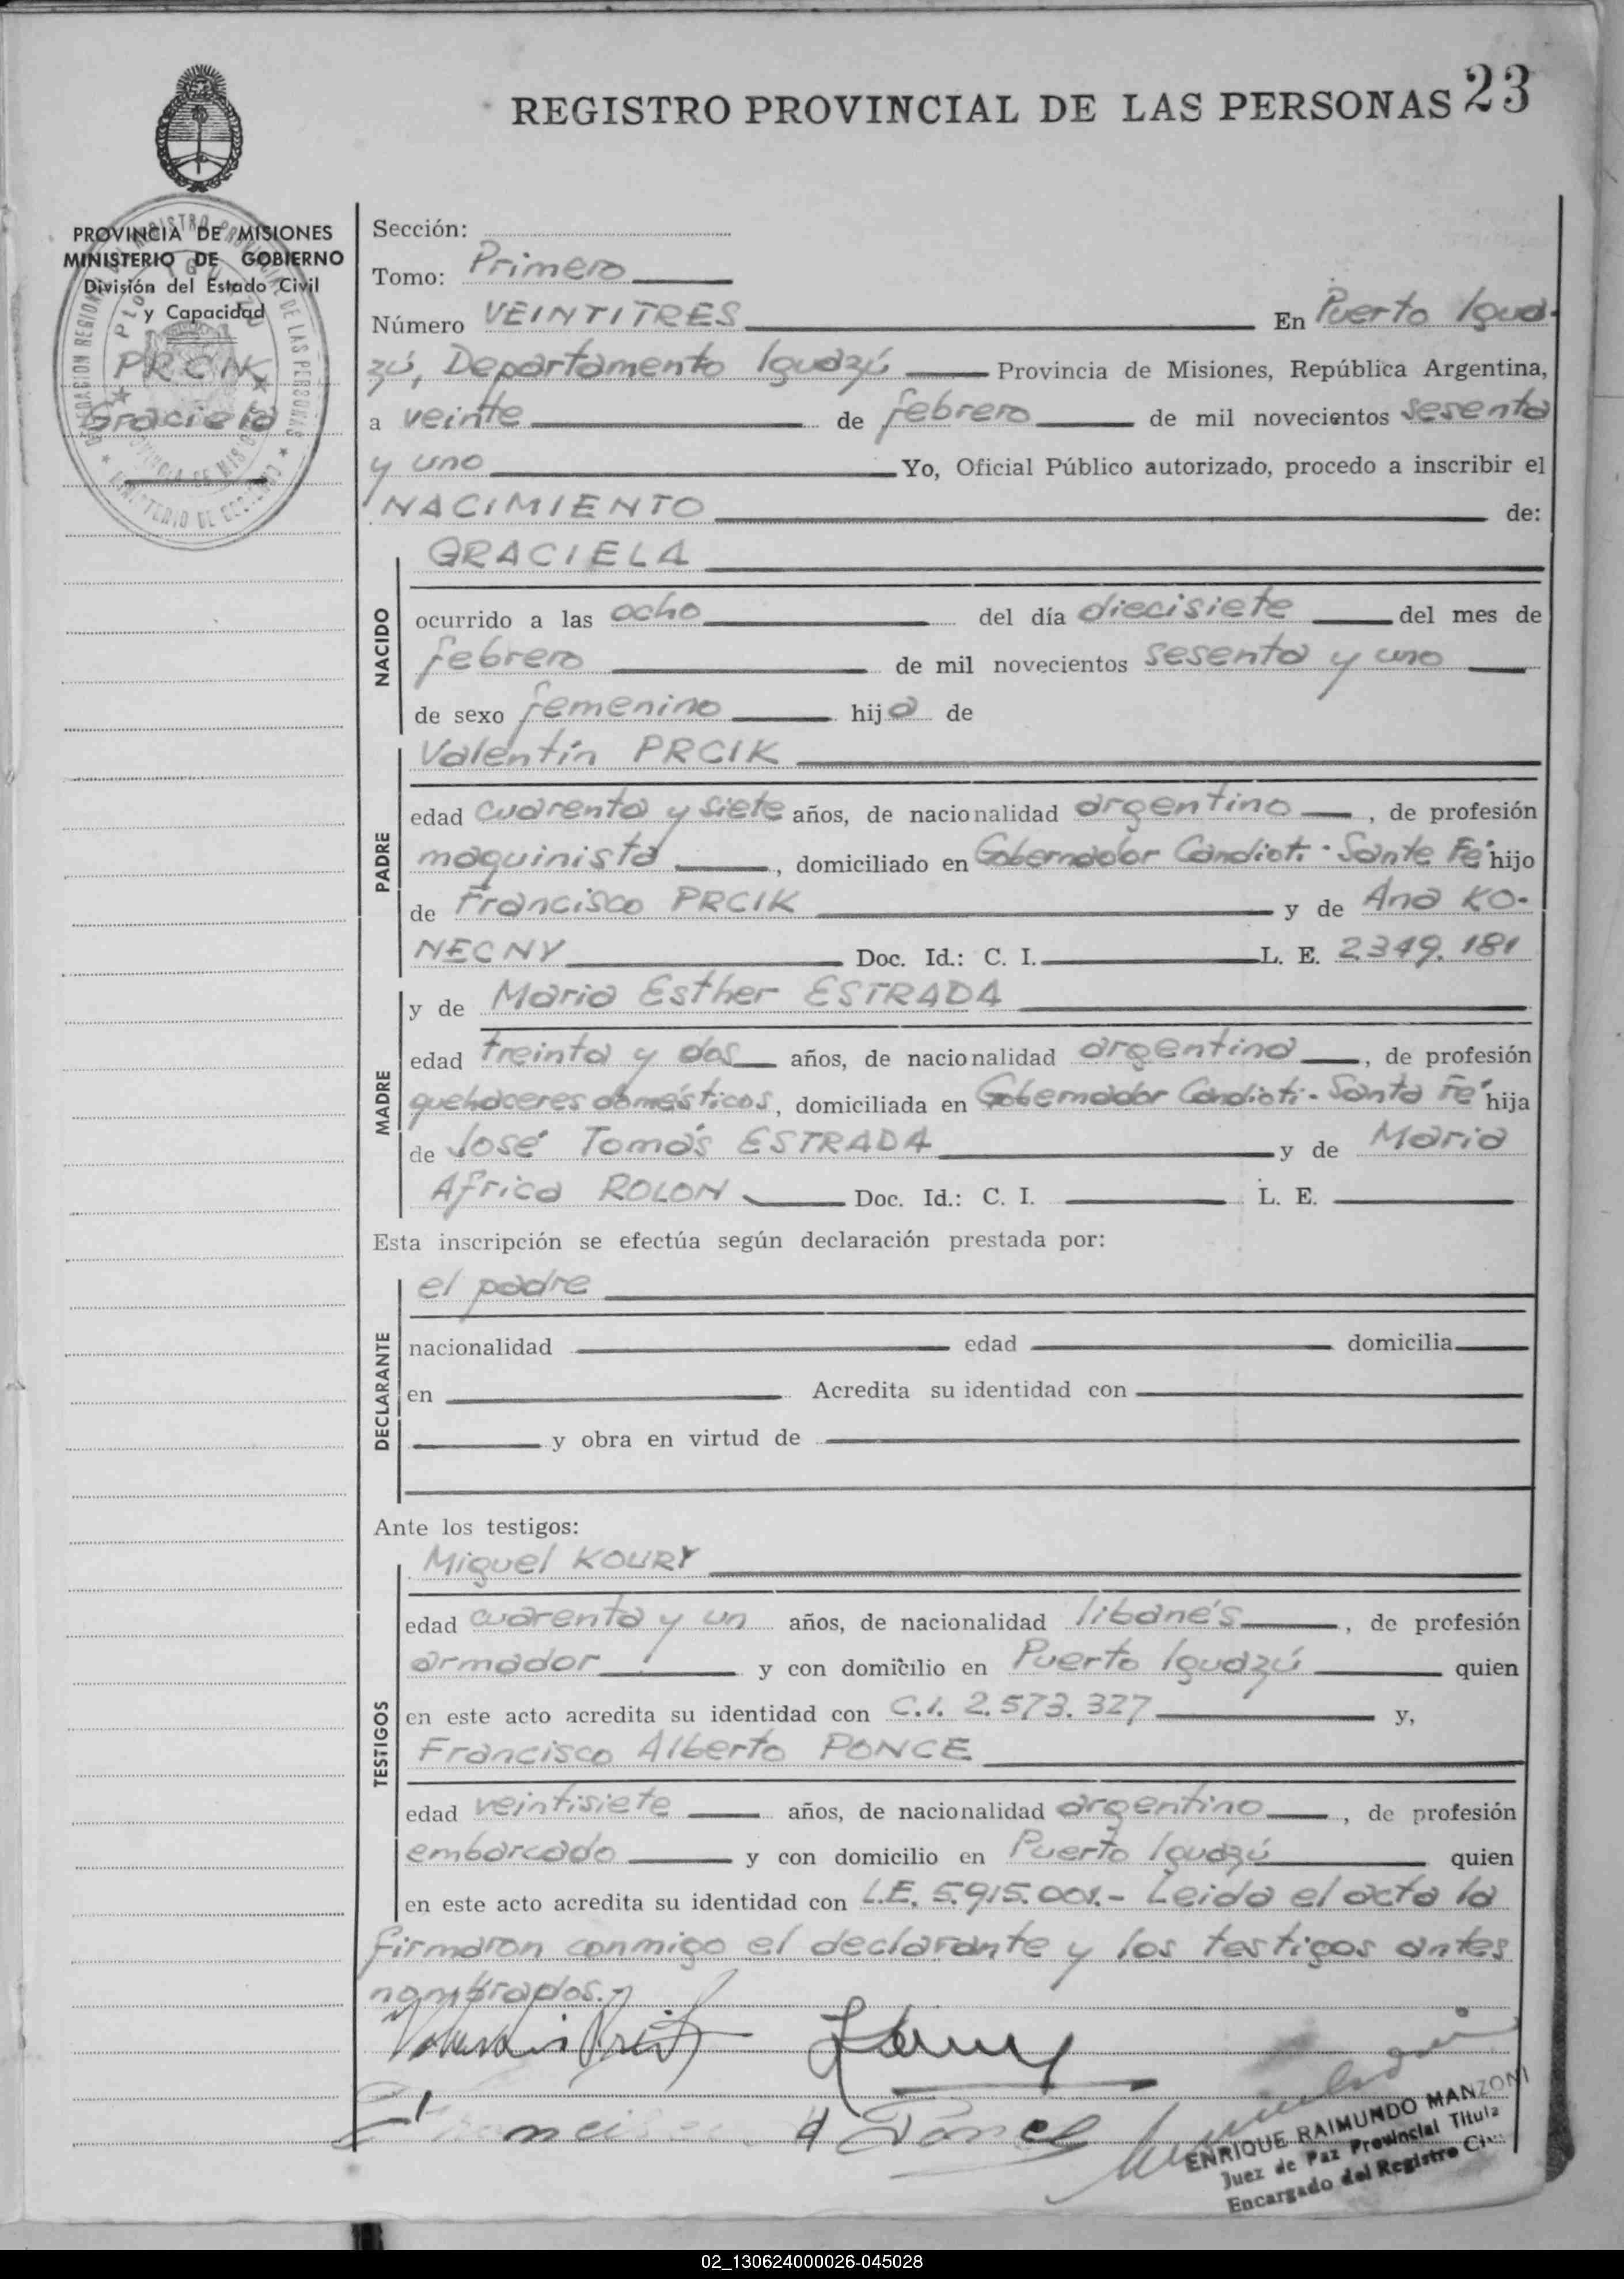 REGISTRO PROVINCIAL DE LAS PERSONAS 23
PROVINCIA DE MISIONES
MINISTERIO DE GOBIERNO
División del Estado Civil
y Capacidad
PRCIK
Graciela
Sección:
Tomo: Primero
Número VEINTITRES En Puerto Igua-
zú, Departamento Iguazú Provincia de Misiones, República Argentina,
a veinte de febrero de mil novecientos sesenta
y uno Yo, Oficial Público autorizado, procedo a inscribir el
NACIMIENTO de:
NACIDO
GRACIELA
ocurrido a las ocho del día diecisiete del mes de
febrero de mil novecientos sesenta y uno
de sexo femenino hija de
PADRE
Valentín PRCIK
edad cuarenta y siete años, de nacionalidad argentino, de profesión
maquinista, domiciliado en Gobernador Candioti - Santa Fé hijo
de Francisco PRCIK y de Ana KO-
NECNY Doc. Id.: C. I. L. E. 2.349.181
MADRE
y de Maria Esther ESTRADA
edad treinta y dos años, de nacionalidad argentina, de profesión
quehaceres domésticos, domiciliada en Gobernador Candioti - Santa Fé hija
de José Tomás ESTRADA y de Maria
Africa ROLON Doc. Id.: C. I. L. E.
Esta inscripción se efectúa según declaración prestada por:
DECLARANTE
el padre
nacionalidad edad domicilia
en Acredita su identidad con
y obra en virtud de
Ante los testigos:
TESTIGOS
Miguel KOURY
edad cuarenta y un años, de nacionalidad libanés, de profesión
armador y con domicilio en Puerto Iguazú quien
en este acto acredita su identidad con C.I. 2.573.327 y,
Francisco Alberto PONCE
edad veintisiete años, de nacionalidad argentino, de profesión
embarcado y con domicilio en Puerto Iguazú quien
en este acto acredita su identidad con L.E. 5.915.001.- Leida el acta la
firmaron conmigo el declarante y los testigos antes
nombrados.
Francisco A Ponce
ENRIQUE RAIMUNDO MANZONI
Juez de Paz Provincial Titula
Encargado del Registro Civ
02_130624000026-045028